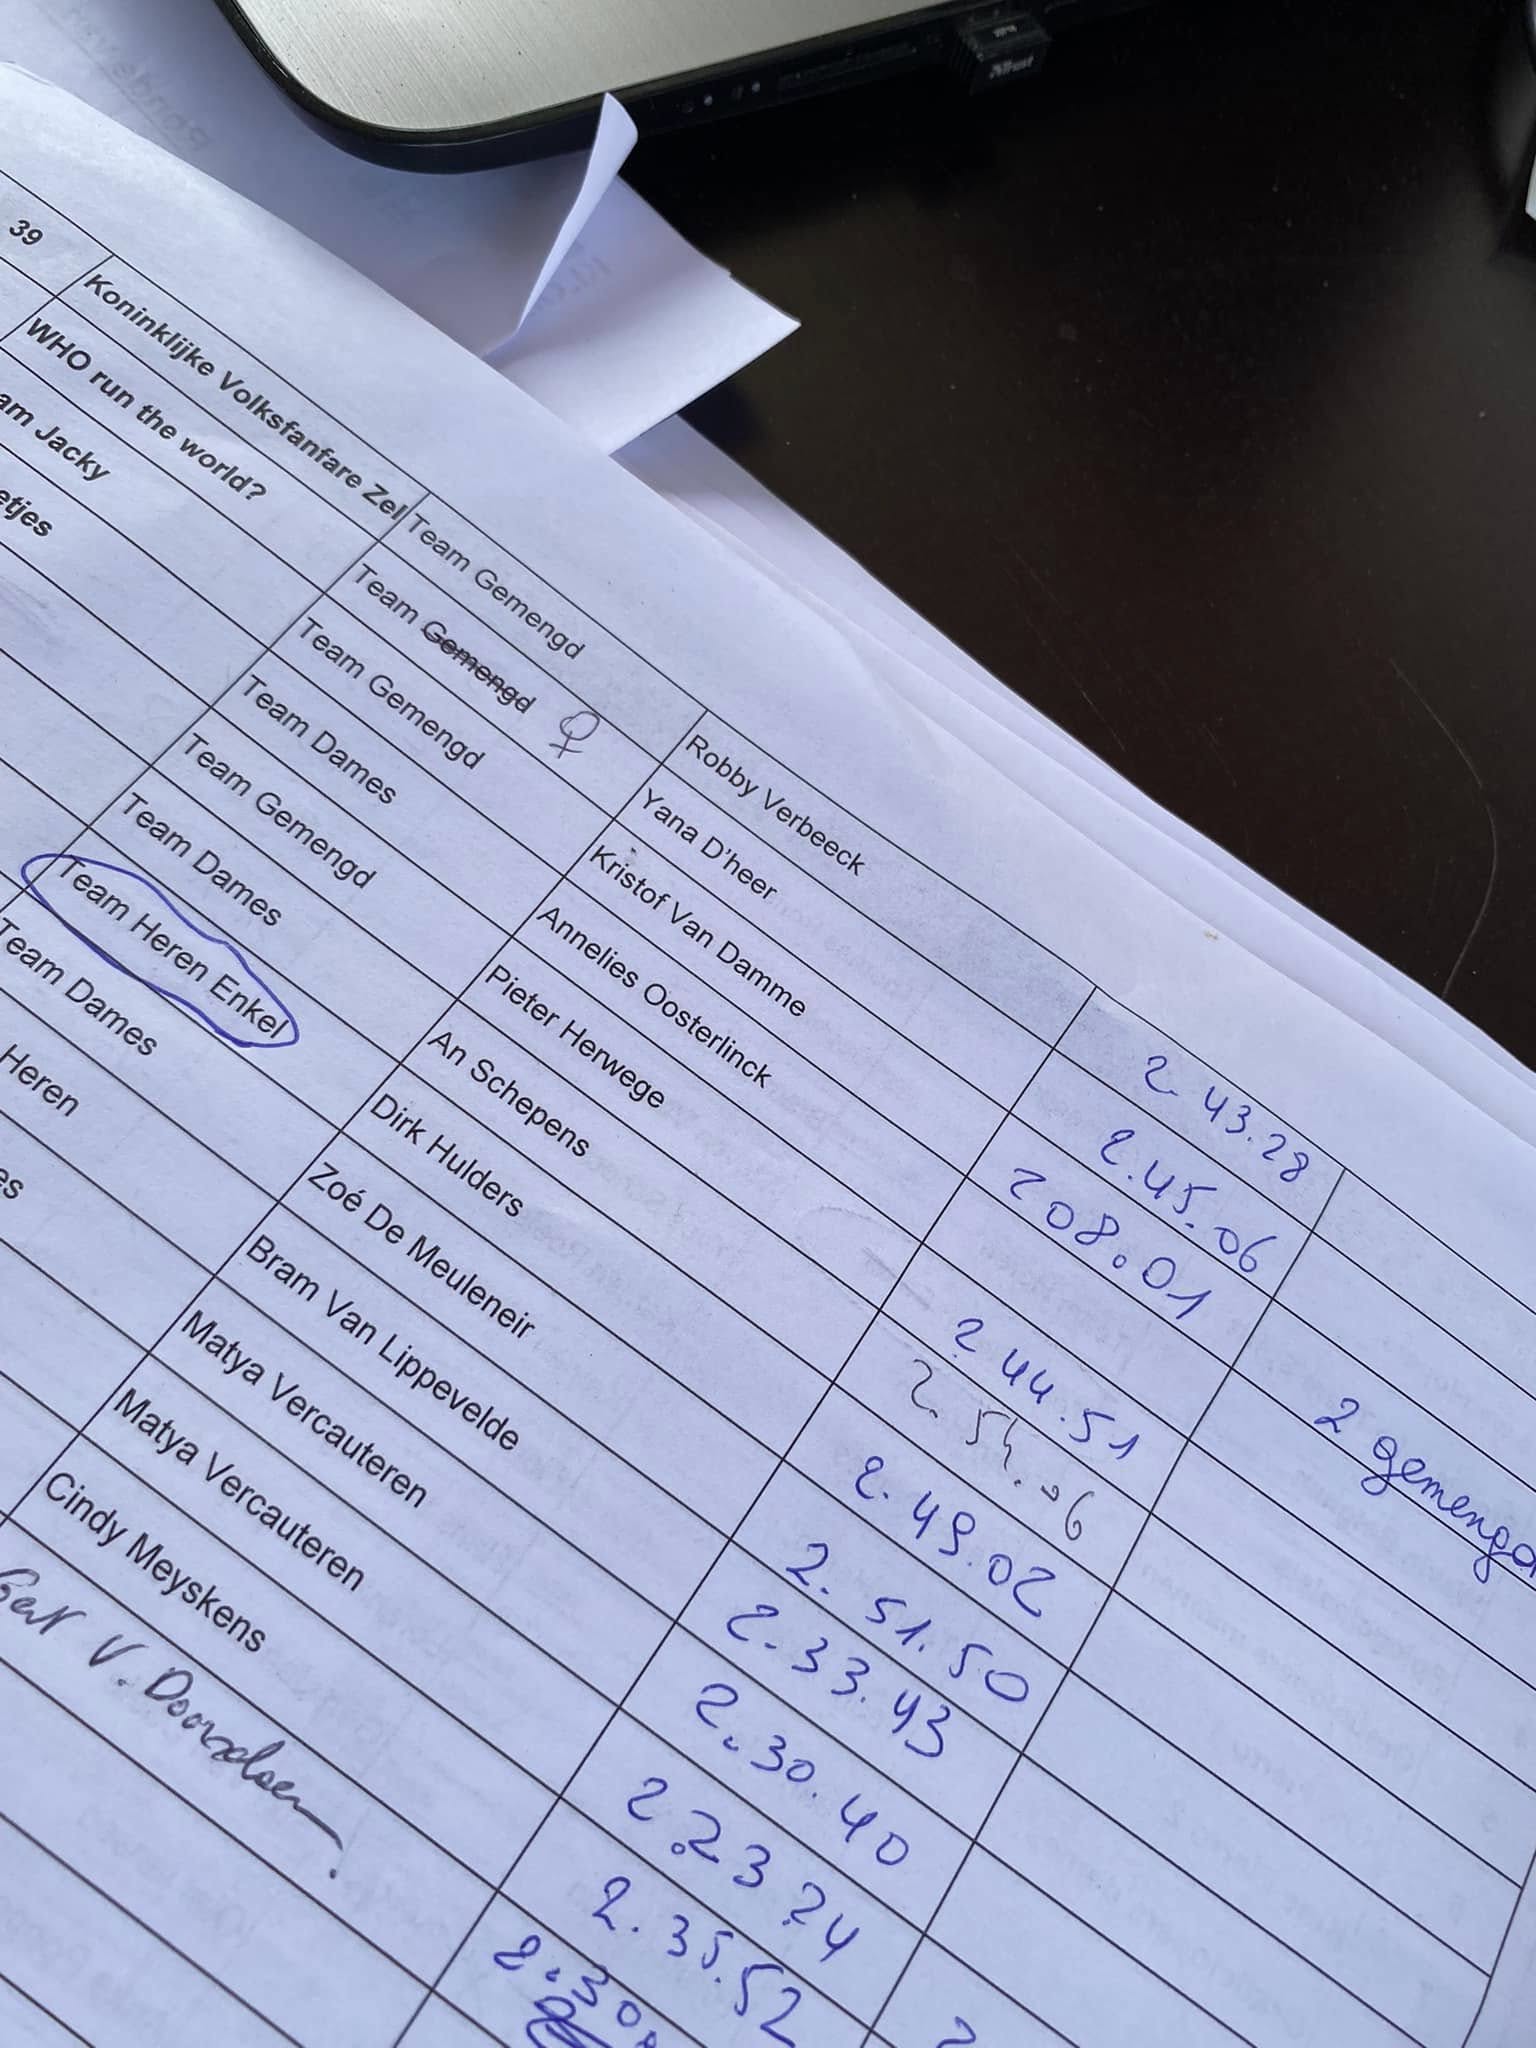 39 Koninklijke Volksfanfare Zel Team Gemengd Robby Verbeeck 2.43.28
WHO run the world? Team Gemengd ♀ Yana D'heer 2.45.06
am Jacky Team Gemengd Kristof Van Damme 208.01
etjes Team Dames Annelies Oosterlinck
Team Gemengd Pieter Herwege 2 44.51 2 gemengd
Team Dames An Schepens 2.54.06
Team Heren Enkel Dirk Hulders 2.49.02
Team Dames Zoé De Meuleneir 2.51.50
Heren Bram Van Lippevelde 2.33.43
es Matya Vercauteren 2.30.40
Matya Vercauteren 2.23 24
Cindy Meyskens 2.35.52
V. Doorslaer 2.30.
Trust